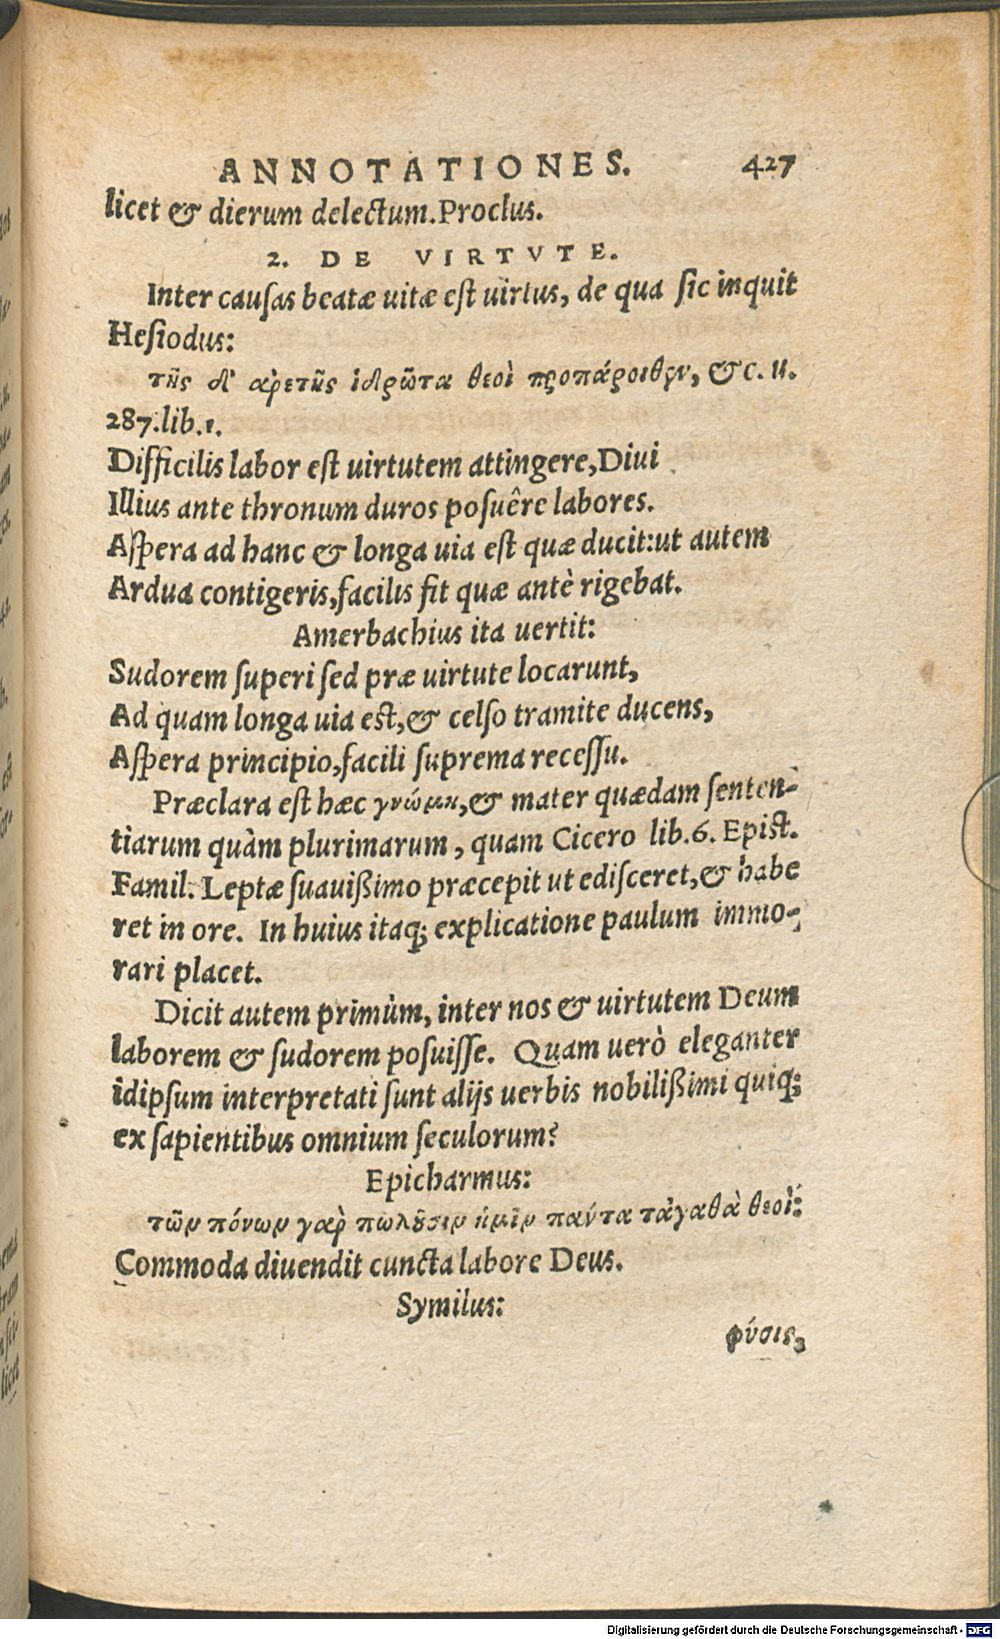 ANNOTATIONES. 427
licet & dierum delectum. Proclus.
2. DE VIRTVTE.
Inter causas beatæ uitæ est uirtus, de qua sic inquit
Hesiodus:
τῆς δ' ἀρετῆς ἱδρῶτα θεοὶ προπάροιθεν, &c. u.
287. lib. 1.
Difficilis labor est uirtutem attingere, Diui
Illius ante thronum duros posuêre labores.
Aspera ad hanc & longa uia est quæ ducit: ut autem
Ardua contigeris, facilis fit quæ antè rigebat.
Amerbachius ita uertit:
Sudorem superi sed præ uirtute locarunt,
Ad quam longa uia est, & celso tramite ducens,
Aspera principio, facili suprema recessu.
Præclara est hæc γνώμη, & mater quædam senten-
tiarum quàm plurimarum, quam Cicero lib. 6. Epist.
Famil. Leptæ suauißimo præcepit ut edisceret, & habe
ret in ore. In huius itaq; explicatione paulum immo-
rari placet.
Dicit autem primùm, inter nos & uirtutem Deum
laborem & sudorem posuisse. Quam uerò eleganter
idipsum interpretati sunt alijs uerbis nobilißimi quiq;
ex sapientibus omnium seculorum?
Epicharmus:
τῶν πόνων γὰρ πωλοῦσιν ἡμῖν πάντα τἀγαθὰ θεοί:
Commoda diuendit cuncta labore Deus.
Symilus:
φύσις,
Digitalisierung gefördert durch die Deutsche Forschungsgemeinschaft - DFG